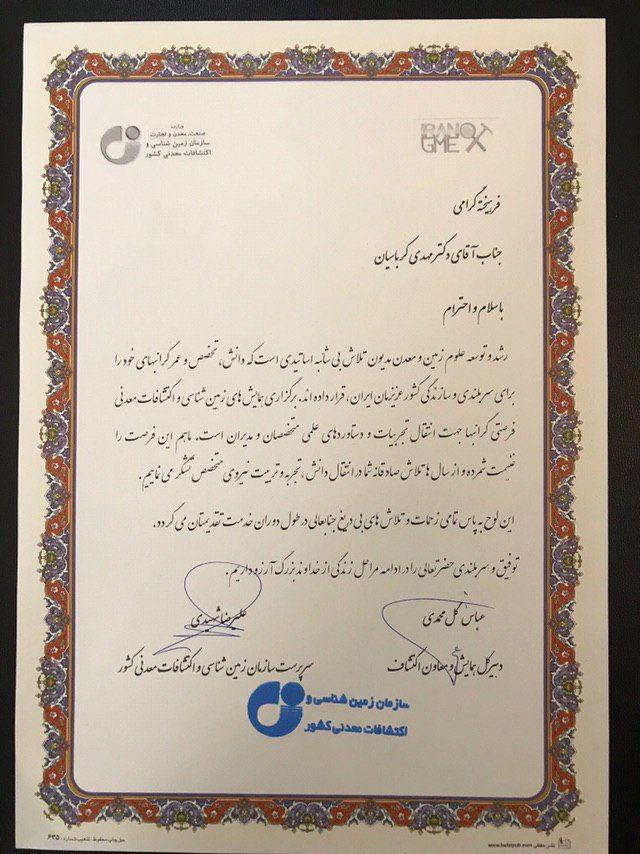 وزارت
صنعت، معدن و تجارت
سازمان زمین شناسی و
اکتشافات معدنی کشور
GMEX
فرهیخته گرامی
جناب آقای دکتر مهدی کرباسیان
با سلام و احترام
رشد و توسعه علوم زمین و معدن مدیون تلاش بی شائبه اساتیدی است که دانش، تخصص و عمر گرانبهای خود را
برای سربلندی و سازندگی کشور عزیزمان ایران، قرار داده اند. برگزاری همایش های زمین شناسی و اکتشافات معدنی
فرصتی گرانبها جهت انتقال تجربیات و دستاوردهای علمی متخصصان و مدیران است. ما هم این فرصت را
غنیمت شمرده و از سال ها تلاش صادقانه شما در انتقال دانش، تجربه و تربیت نیروی متخصص تشکر می نماییم.
این لوح به پاس تمامی زحمات و تلاش های بی دریغ جنابعالی در طول دوران خدمت تقدیمتان می گردد.
توفیق و سربلندی حضرتعالی را در ادامه مراحل زندگی از خداوند بزرگ آرزو داریم.
عباس گل محمدی
علیرضا شهیدی
دبیر کل همایش و معاون اکتشاف
سرپرست سازمان زمین شناسی و اکتشافات معدنی کشور
سازمان زمین شناسی و
اکتشافات معدنی کشور
حق چاپ محفوظ - تذهیب شماره: ۶۳۵